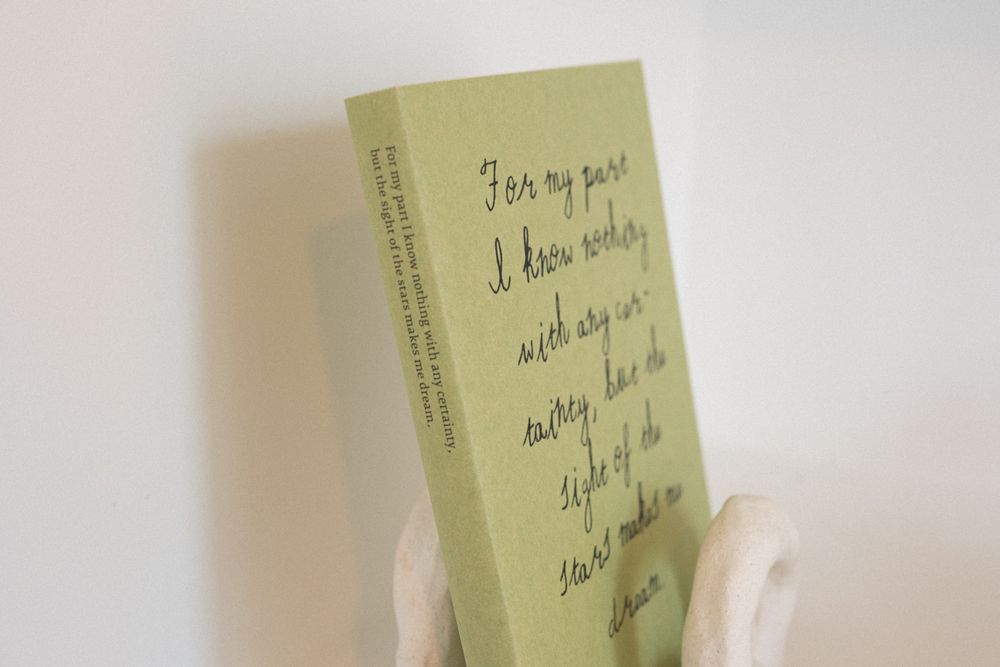 For my part I know nothing with any certainty,
but the sight of the stars makes me dream.
For my part
I know nothing
with any cer-
tainty, but the
sight of the
stars makes me
dream.